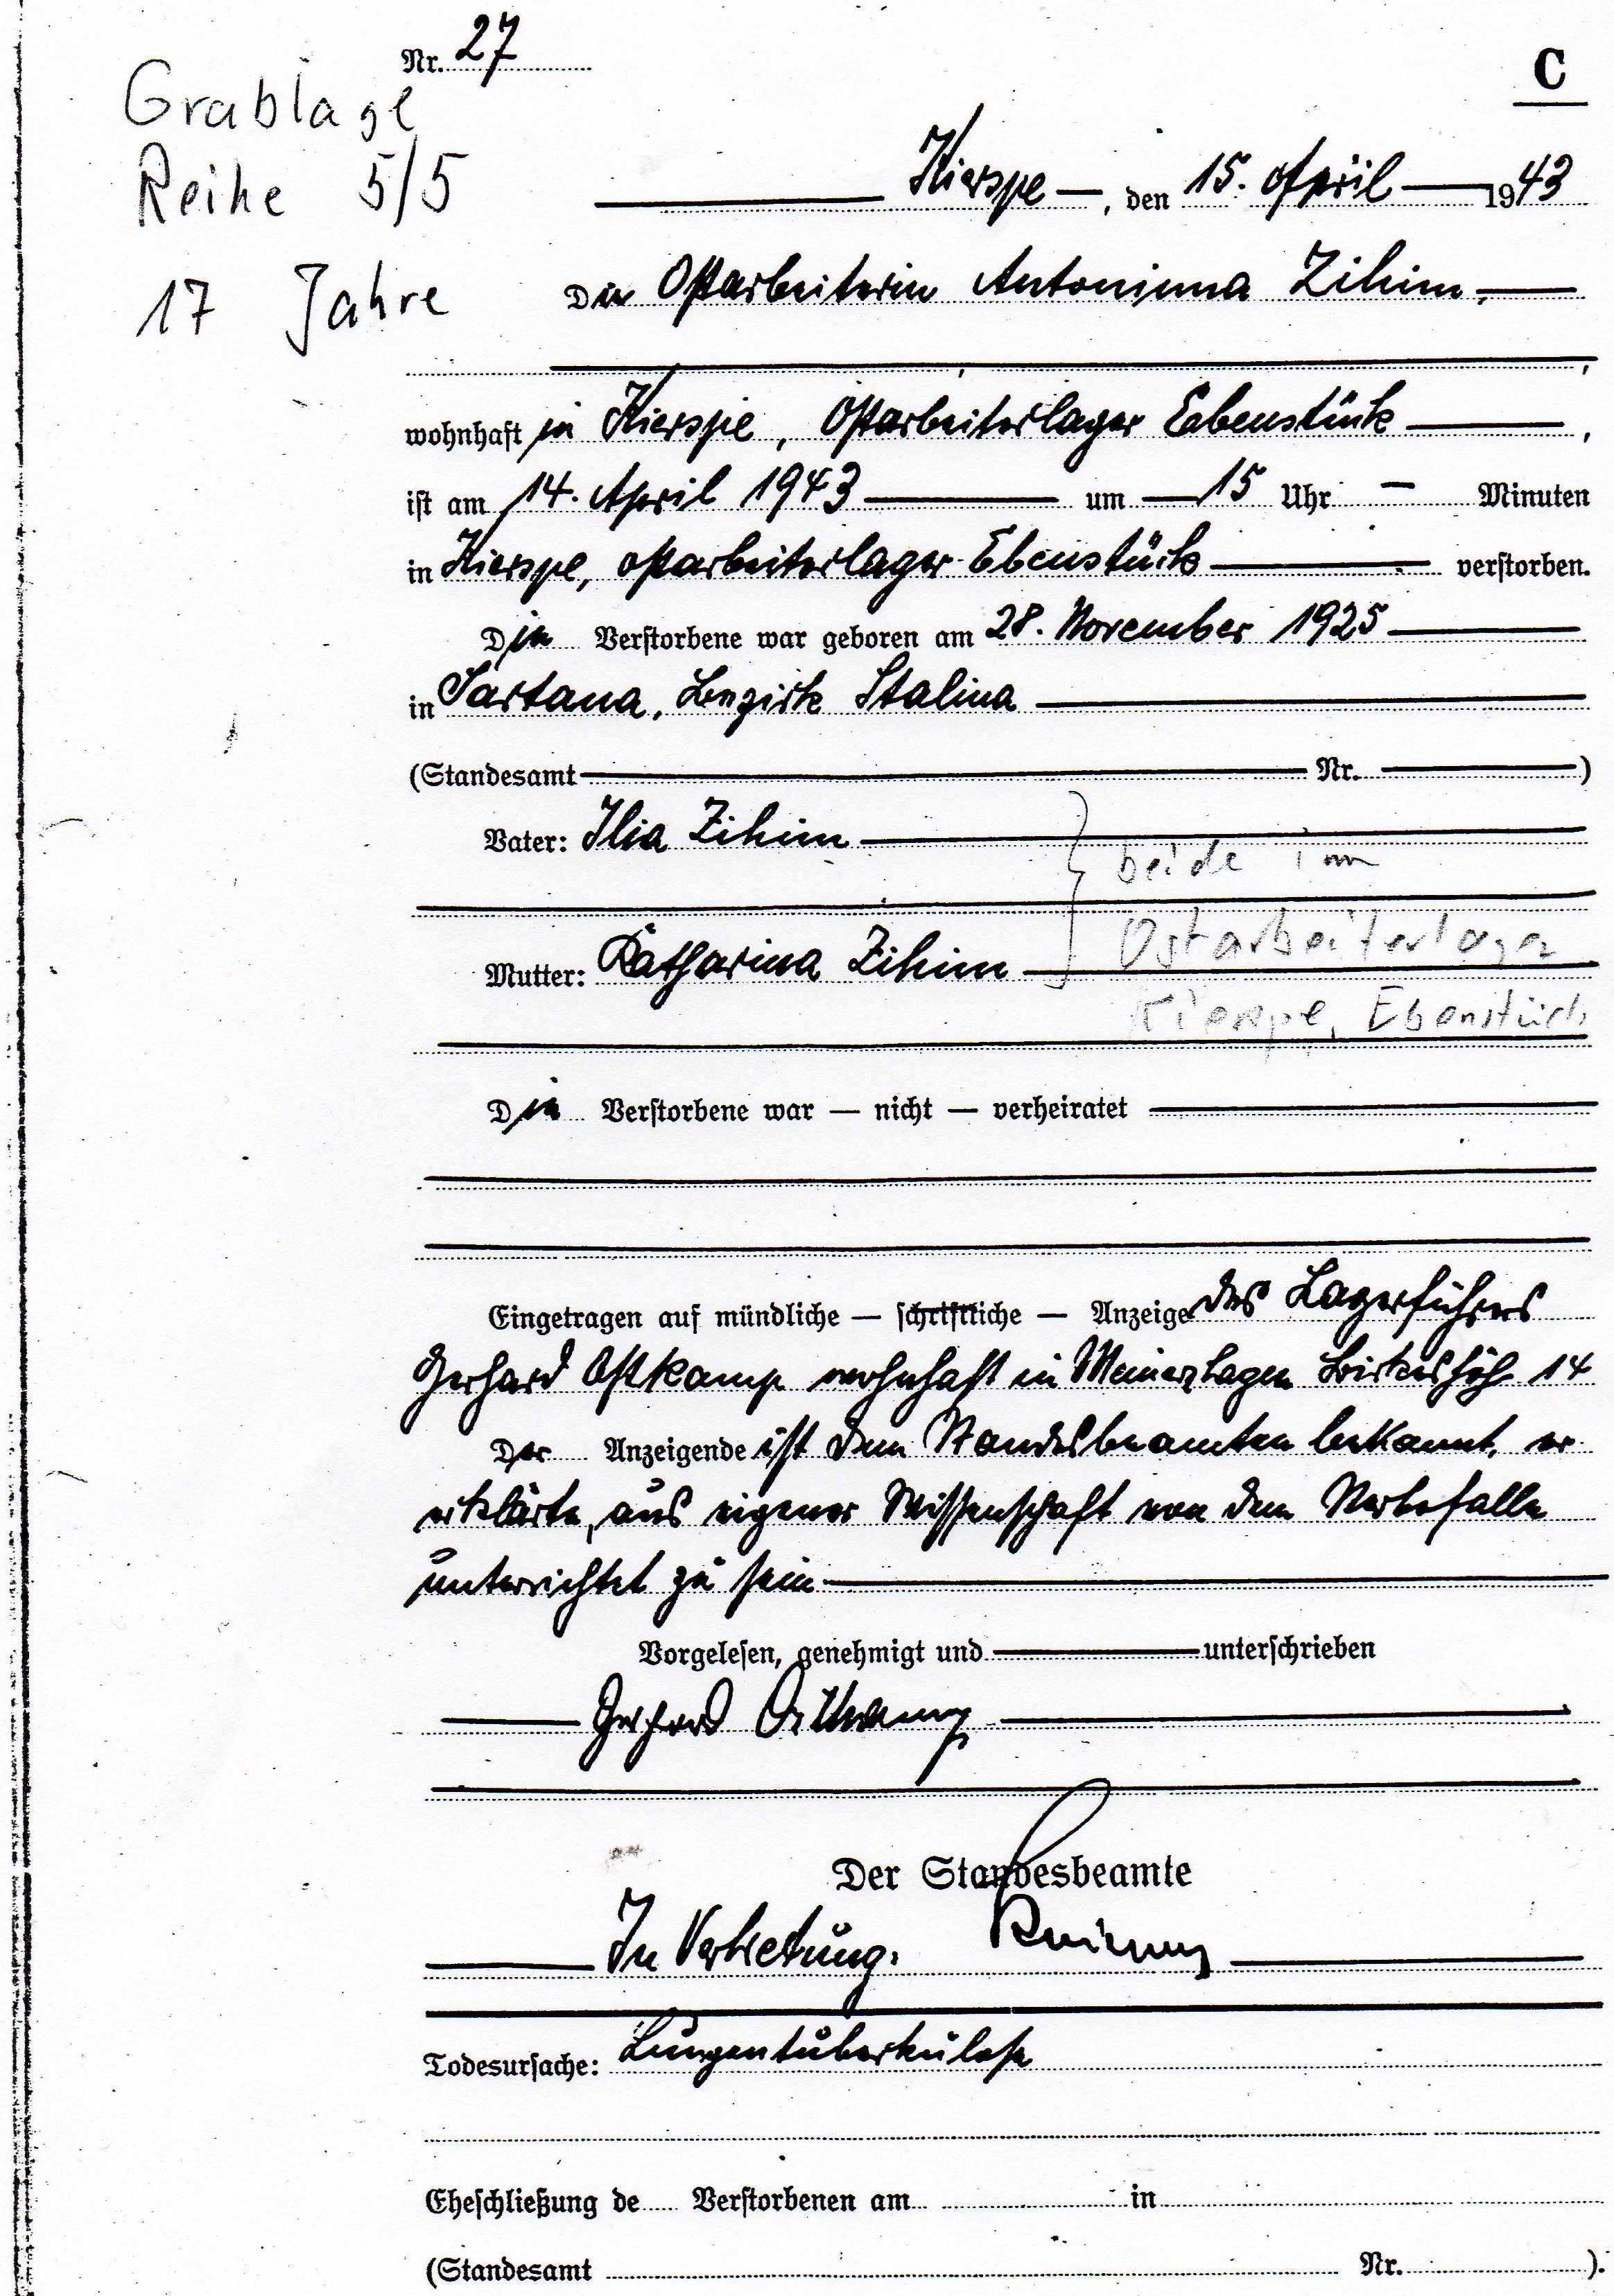 Nr. 27
C
Grablage
Reihe 5/5
17 Jahre
Kierspe, den 15. April 1943
Die Ostarbeiterin Antoninna Zihim,
wohnhaft in Kierspe, Ostarbeiterlager Ebenstück,
ist am 14. April 1943 um 15 Uhr — Minuten
in Kierspe, Ostarbeiterlager Ebenstück verstorben.
Die Verstorbene war geboren am 28. November 1925
in Sartana, Bezirk Stalina
(Standesamt Nr. )
Vater: Ilia Zihim
beide im
Ostarbeiterlager
Mutter: Katharina Zihim
Kierspe, Ebenstück
Die Verstorbene war — nicht — verheiratet
Eingetragen auf mündliche — schriftliche — Anzeige des Lagerführers
Gerhard Ostkamp wohnhaft in Meinerzhagen Birkeshöh 14
Der Anzeigende ist dem Standesbeamten bekannt, er
erklärte, aus eigener Wissenschaft von dem Sterbefalle
unterrichtet zu sein
Vorgelesen, genehmigt und unterschrieben
Gerhard Ostkamp
Der Standesbeamte
In Vertretung.
Todesursache: Lungentuberkulose
Eheschließung de Verstorbenen am in
(Standesamt Nr. ).